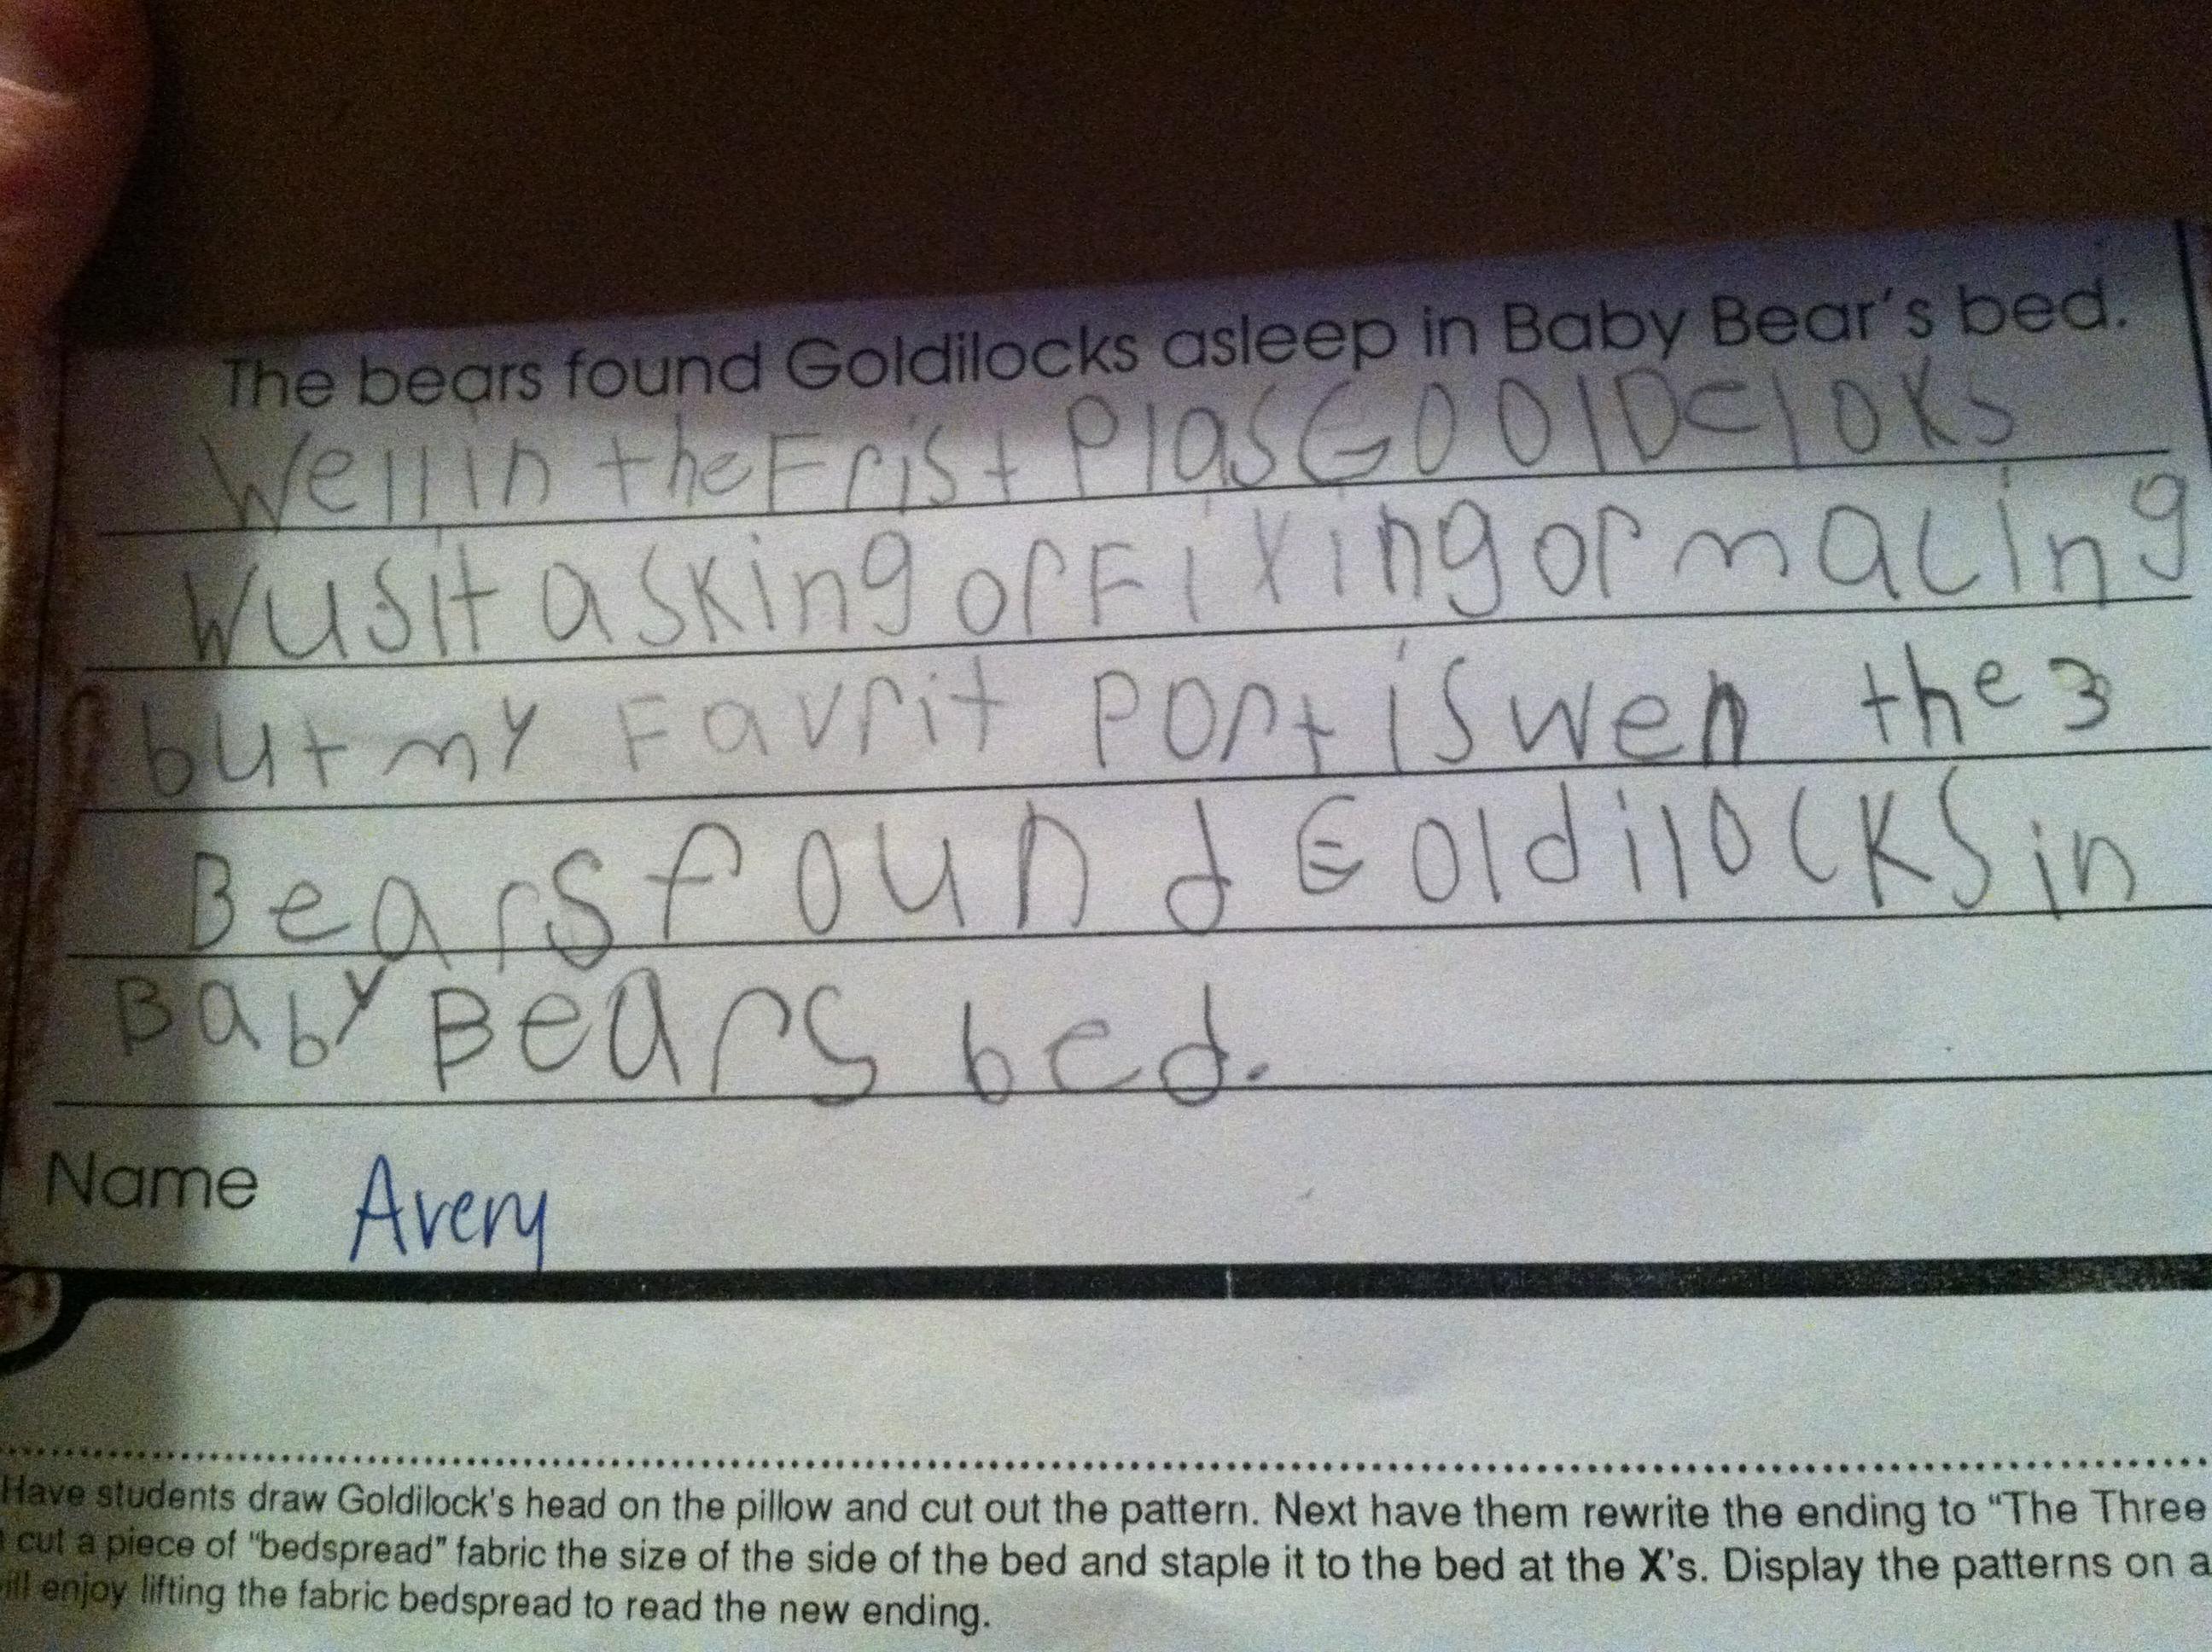 The bears found Goldilocks asleep in Baby Bear's bed.
Well in the Frist Plas GoolDeloks
wusit asking or Fixing or macing
but my Favrit Port is wen the 3
Bears found Goldilocks in
Baby Bears bed.
Name Avery
Have students draw Goldilock's head on the pillow and cut out the pattern. Next have them rewrite the ending to "The Three
cut a piece of "bedspread" fabric the size of the side of the bed and staple it to the bed at the X's. Display the patterns on a
enjoy lifting the fabric bedspread to read the new ending.